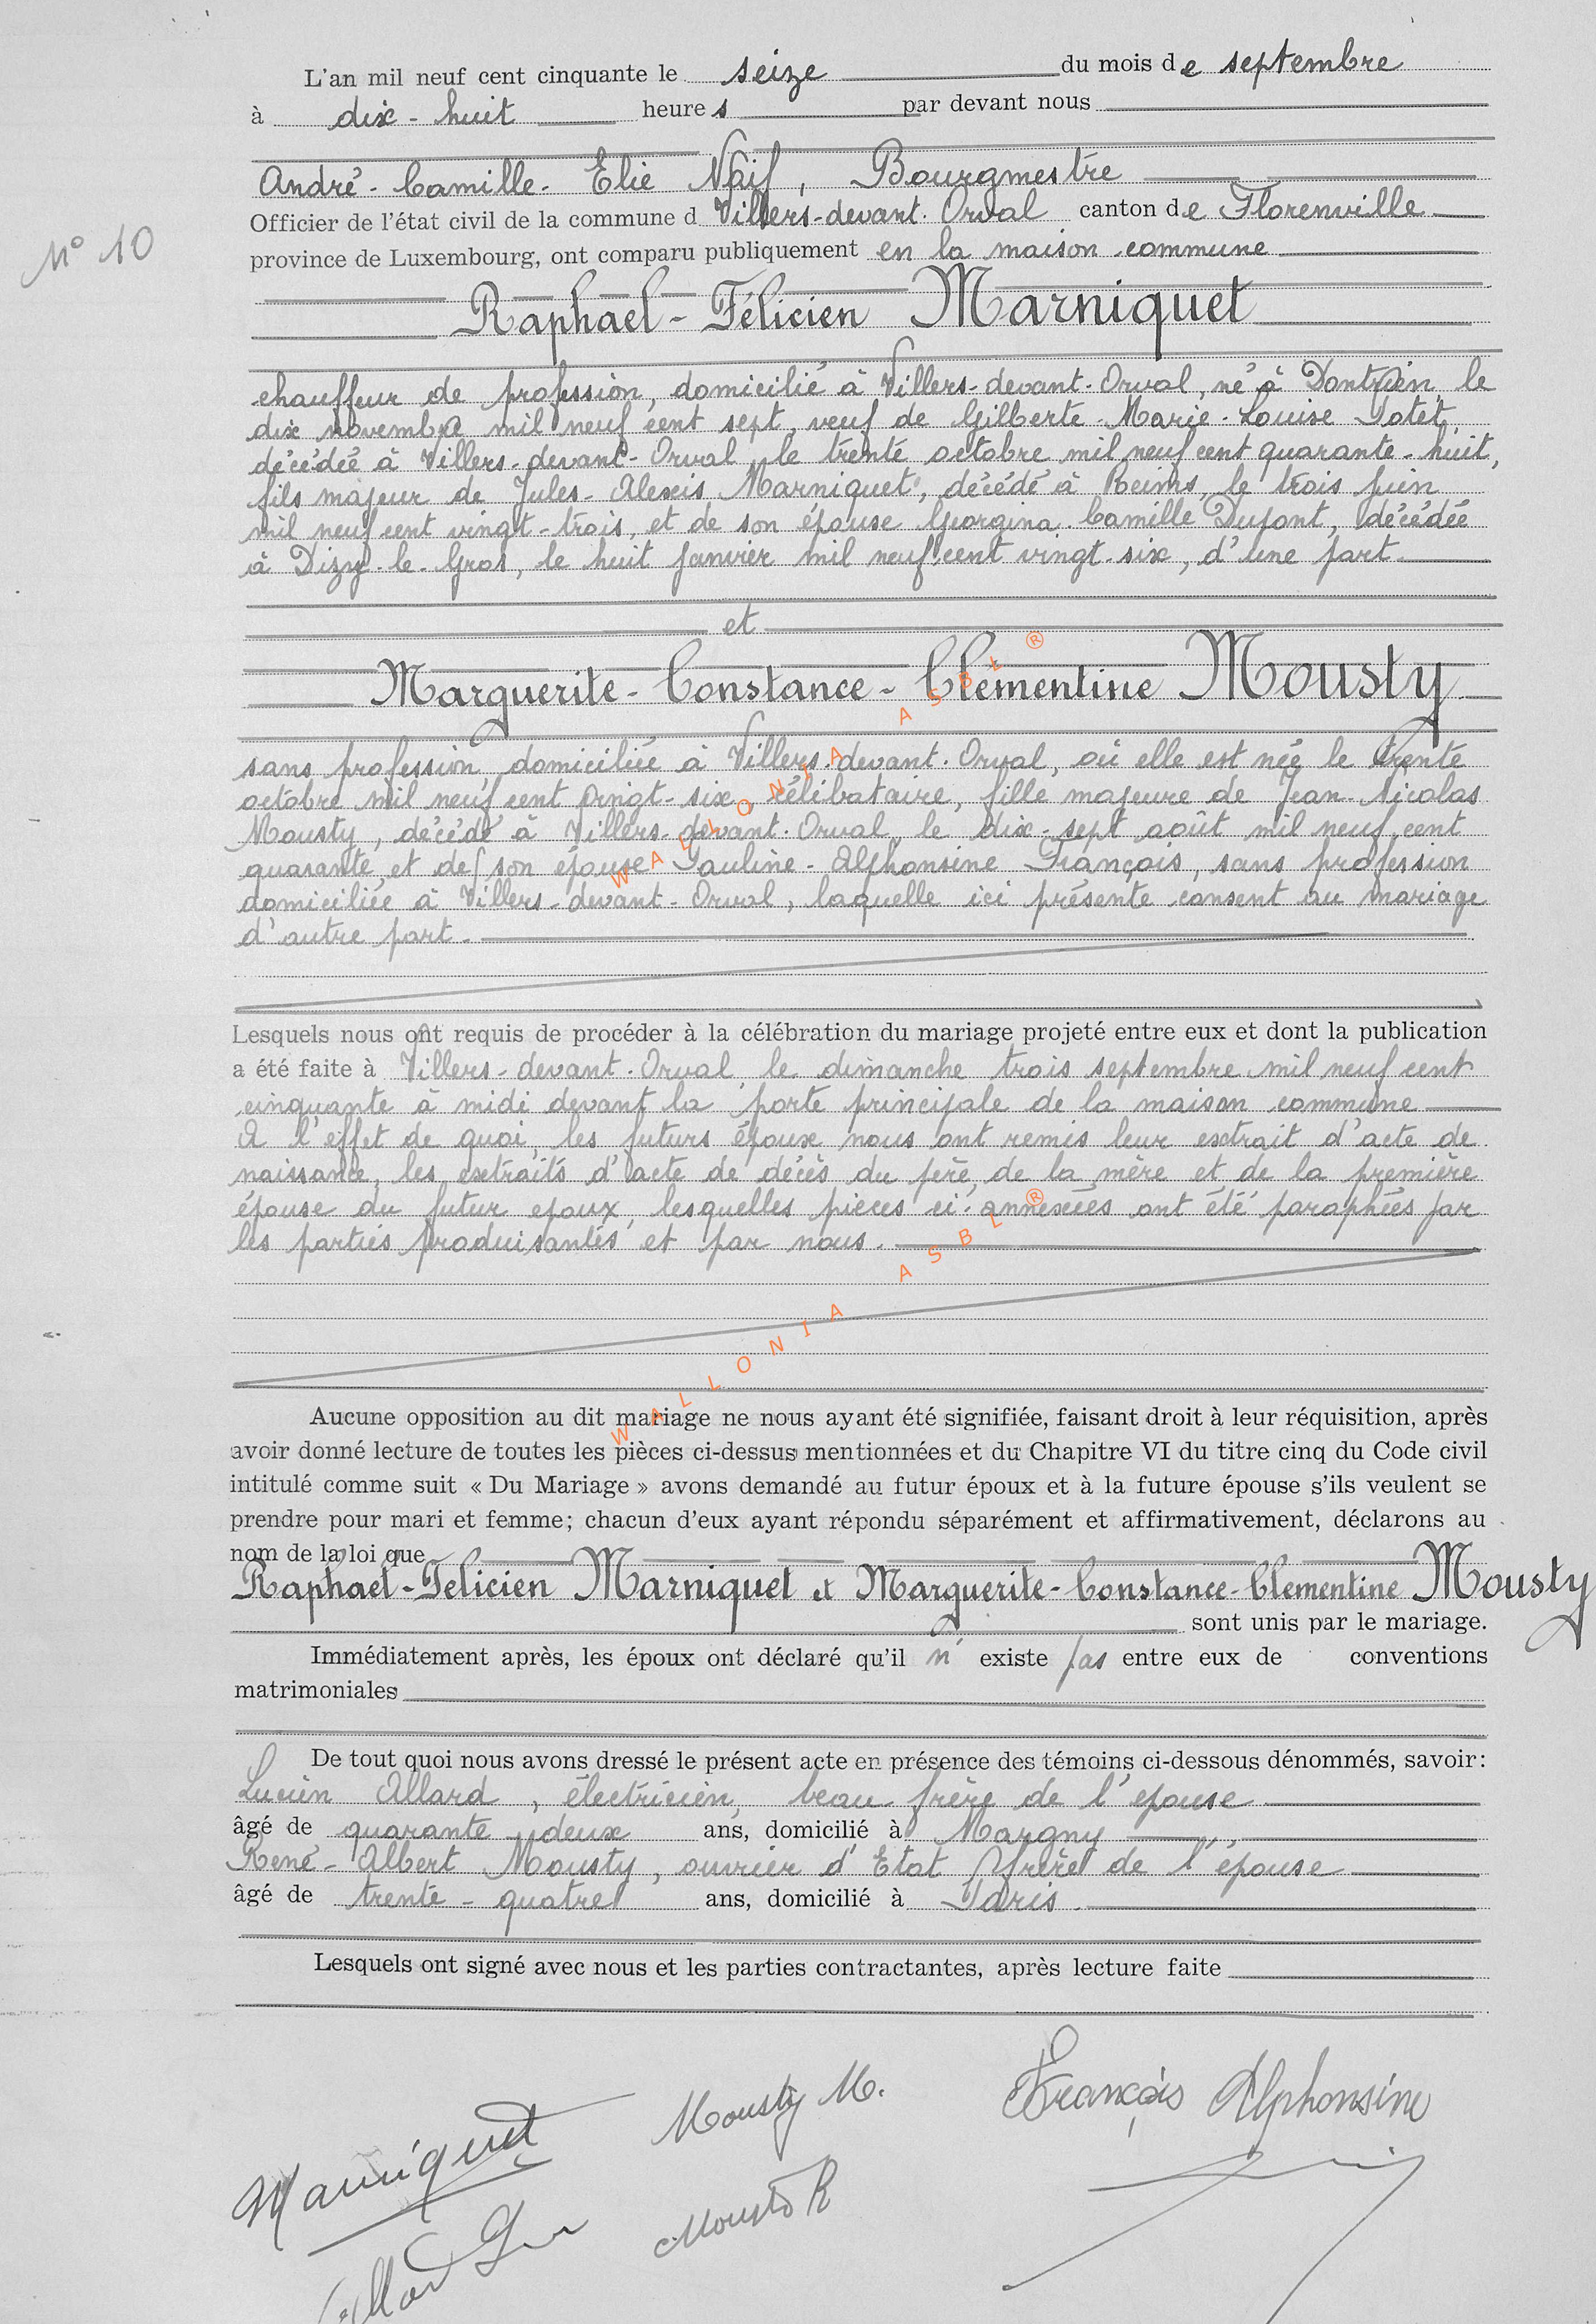 L'an mil neuf cent cinquante le seize du mois de septembre
à dix-huit heures par devant nous
André-Camille-Elie Naif, Bourgmestre
Officier de l'état civil de la commune d Villers-devant-Orval canton de Florenville
N° 10
province de Luxembourg, ont comparu publiquement en la maison commune
Raphaël-Félicien Marniquet
chauffeur de profession, domicilié à Villers-devant-Orval, né à Dontrien, le
dix novembre mil neuf cent sept, veuf de Gilberte-Marie-Louise Potet,
décédée à Villers-devant-Orval, le trente octobre mil neuf cent quarante-huit,
fils majeur de Jules-Alexis Marniquet, décédé à Reims, le trois juin
mil neuf cent vingt-trois, et de son épouse Georgina-Camille Dupont, décédée
à Dizy-le-Gros, le huit janvier mil neuf cent vingt-six, d'une part
et
Marguerite-Constance-Clémentine Mousty
sans profession, domiciliée à Villers-devant-Orval, où elle est née le trente
octobre mil neuf cent vingt-six, célibataire, fille majeure de Jean-Nicolas
Mousty, décédé à Villers-devant-Orval, le dix-sept août mil neuf cent
quarante, et de son épouse Pauline-Alphonsine François, sans profession
domiciliée à Villers-devant-Orval, laquelle ici présente consent au mariage
d'autre part.
WALLONIA ASBL ®
Lesquels nous ont requis de procéder à la célébration du mariage projeté entre eux et dont la publication
a été faite à Villers-devant-Orval, le dimanche trois septembre mil neuf cent
cinquante à midi devant la porte principale de la maison commune
A l'effet de quoi, les futurs époux nous ont remis leur extrait d'acte de
naissance, les extraits d'acte de décès du père, de la mère et de la première
épouse du futur epoux, lesquelles pièces ci-annexées ont été paraphées par
les parties produisantes et par nous.
WALLONIA ASBL ®
Aucune opposition au dit mariage ne nous ayant été signifiée, faisant droit à leur réquisition, après
avoir donné lecture de toutes les pièces ci-dessus mentionnées et du Chapitre VI du titre cinq du Code civil
intitulé comme suit « Du Mariage » avons demandé au futur époux et à la future épouse s'ils veulent se
prendre pour mari et femme; chacun d'eux ayant répondu séparément et affirmativement, déclarons au
nom de la loi que
Raphaël-Félicien Marniquet et Marguerite-Constance-Clementine Mousty
sont unis par le mariage.
Immédiatement après, les époux ont déclaré qu'il n' existe pas entre eux de conventions
matrimoniales
De tout quoi nous avons dressé le présent acte en présence des témoins ci-dessous dénommés, savoir:
Lucien Allard, électricien, beau-frère de l'epouse
âgé de quarante deux ans, domicilié à Margny
René-Albert Mousty, ouvrier d'Etat frère de l'épouse
âgé de trente-quatre ans, domicilié à Paris.
Lesquels ont signé avec nous et les parties contractantes, après lecture faite
Mousty M. François Alphonsine
Marniquet
Mousty R